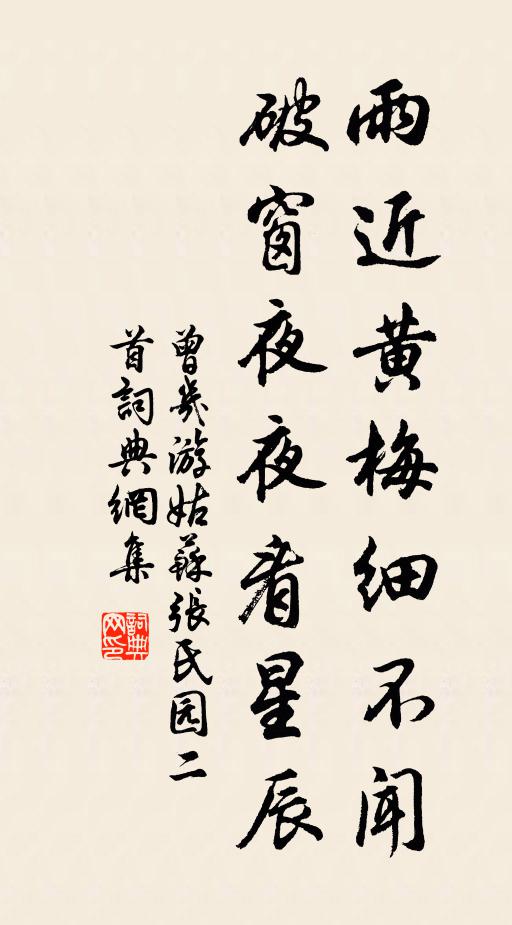 雨近黄梅细不闻
破窗夜夜看星辰
曾幾游姑蘇張氏园二
首詞典網集
詞典网印